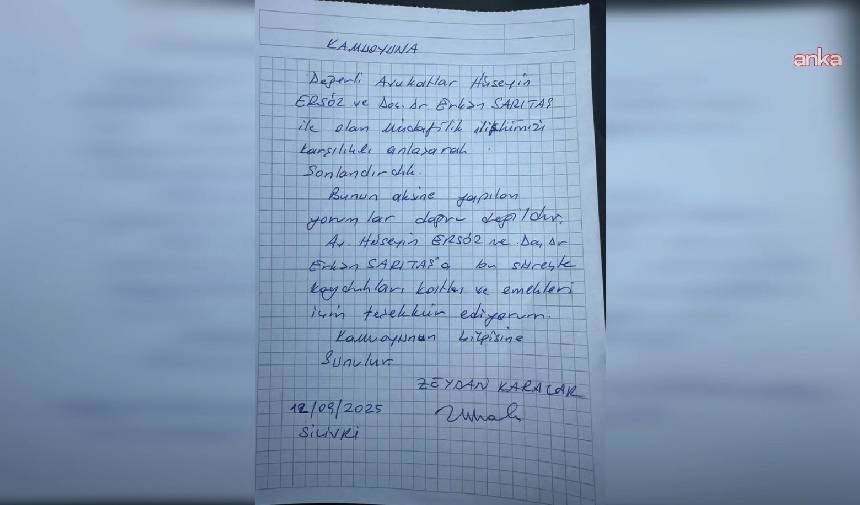 KAMUOYUNA
anka
Değerli Avukatlar Hüseyin
ERSÖZ ve Doç. Dr Erkan SARITAŞ
ile olan Müdafilik ilişkimizi
karşılıklı anlaşarak
Sonlandırdık.
Bunun aksine yapılan
yorumlar doğru değildir.
Av. Hüseyin ERSÖZ ve Doç Dr
Erkan SARITAŞ'a bu süreçte
koydukları katkı ve emekleri
için teşekkür ediyorum.
Kamuoyunun bilgisine
Sunulur
ZEYDAN KARALAR
12/09/2025
SİLİVRİ